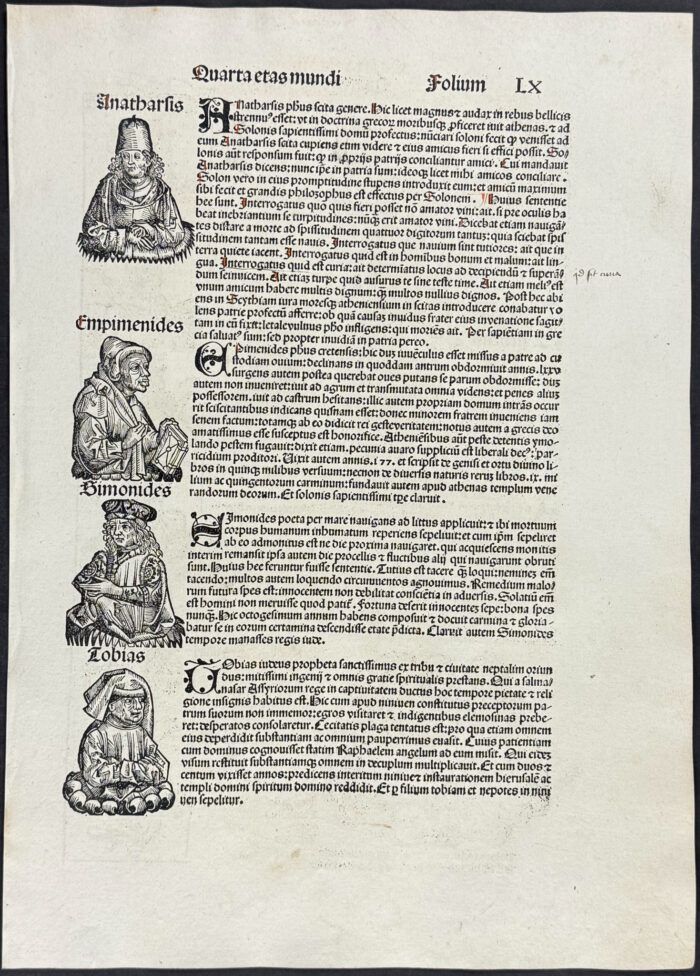 Quarta etas mundi
Folium LX
Anatharsis
Anatharsis phus scita genere. Hic licet magnus ⁊ audax in rebus bellicis
strennuꝰ esset: vt in doctrina grecoꝝ moribusqꝫ ꝓficeret iuit athenas. ⁊ ad
Solonis sapientissimi domū profectus: nūciari soloni fecit ꝙ venisset ad
eum Anatharsis scita cupiens etim videre ⁊ eius amicus fieri si effici possit. So/
lonis aūt responsum fuit: ꝙ in ꝓprijs patrijs conciliantur amici. Cui mandauit
Anatharsis dicens: nunc ipe in patria sum: ideoqꝫ licet mihi amicos conciliare.
Solon vero in eius promptitudine stupens introduxit eum: et amicū maximum
sibi fecit et grandis philosophus est effectus per Solonem. Huius sententie
hee sunt. Interrogatus quo quis fieri posset nō amator vini: ait. si pre oculis ha
beat inebriantium se turpitudines: nūqꝫ erit amator vini. Dicebat etiam nauigā/
tes distare a morte ad spissitudinem quattuor digitorum tantus: quia sciebat spis
situdinem tantam esse nauis. Interrogatus que nauium sint tutiores: ait que in
terra quiete iacent. Interrogatus quid est in homibus bonum et malum: ait lin
gua. Interrogatus quid est curia: ait determiātus locus ad decipiendū ⁊ superā/
dum seinuicem. Ait etiaꝫ turpe quid ausurus te sine teste time. Ait etiam meliꝰ est
vnum amicum habere multis dignum: qꝫ multos nullius dignos. Post hec abi
ens in Scythiam iura moresqꝫ atheniensium in scitas introducere conabatur vo
lens patrie profectū afferre: ob quā causaꝫ inuidus frater eius in venatione sagit/
tam in eū fixit: letale vulnus pho infligens: qui moriēs ait. Per sapiētiam in gre
cia saluatꝰ sum: sed propter inuidiā in patria pereo.
Empimenides
Epimenides phus cretensis: hic dus iuuēculus esset missus a patre ad cu
stodiam ouium: declinans in quoddam antrum obdormiuit annis. lxxv
surgens autem postea querebat oues putans se parum obdormisse: dus
autem non inueniret: iuit ad agrum et transmutata omnia videns: et penes alius
possessorem. iuit ad castrum hesitans: illic autem propriam domum intrās occur
rit sciscitantibus indicans quisnam esset: donec minorem fratrem inueniens iam
senem factum: totamqꝫ ab eo didicit rei geste veritatem: notus autem a grecis deo
amatissimus esse susceptus est honorifice. Atheniēsibus aūt peste detentis ymo/
lando pestem fugauit: dixit etiam. pecunia auaro supplicium est liberali decꝰ: par/
ricidium proditori. Vixit autem annis. 177. et scripsit de genisi et ortu diuino li/
bros in quinqꝫ milibus versuum: necnon de diuersis naturis rerus libros. ix. mi
lium ac quingentorum carminum: fundauit autem apud athenas templum vene
randorum deorum. Et solonis sapientissimi tpe claruit.
Simonides
Simonides poeta per mare nauigans ad littus applicuit: ⁊ ibi mortuum
corpus humanum inhumatum reperiens sepeliuit: et cum ipm sepeliret
ab eo admonitus est ne die proxima nauigaret. qui acquiescens monitis
interim remansit ipsa autem die procellis ⁊ fluctibus alij qui nauigarunt obruti
sunt. Huius hee feruntur fuisse sententie. Tutius est tacere qꝫ loqui: neminem em̄
tacendo: multos autem loquendo circumuentos agnouimus. Remedium malo/
rum futura spes est: innocentem non debilitat consciētia in aduersis. Solatiū em̄
est homini non meruisse quod patit̄. Fortuna deserit innocentes sepe: bona spes
nunqꝫ. Hic octogesimum annum habens composuit ⁊ docuit carmina ⁊ gloria/
batur se in eorum certamina descendisse etate p̄dicta. Claruit autem Simonides
tempore manasses regis iude.
Tobias
Tobias iudeus propheta sanctissimus ex tribu ⁊ ciuitate neptalim oriun
dus: mitissimi ingenij ⁊ omnis gratie spiritualis prestans. Qui a salma/
nasar Assyriorum rege in captiuitatem ductus hoc tempore pietate ⁊ reli
gione insignis habitus est. Hic cum apud niniuen constitutus preceptorum pa/
trum suorum non immemor: egros visitaret ⁊ indigentibus elemosinas prebe/
ret: desperatos consolaretur. Cecitatis plaga tentatus est: pro qua etiam omnem
eius deperdidit substantiam ac omnium pauperrimus euasit. Cuius patientiam
cum dominus cognouisset statim Raphaelem angelum ad eum misit. Qui eidez
visum restituit substantiamqꝫ omnem in decuplum multiplicauit. Et cum duos ⁊
centum vixisset annos: predicens interitum niniue ⁊ instaurationem hierusalē ac
templi domini spiritum domino reddidit. Et ꝑ filium tobiam et nepotes in nini
uen sepelitur.